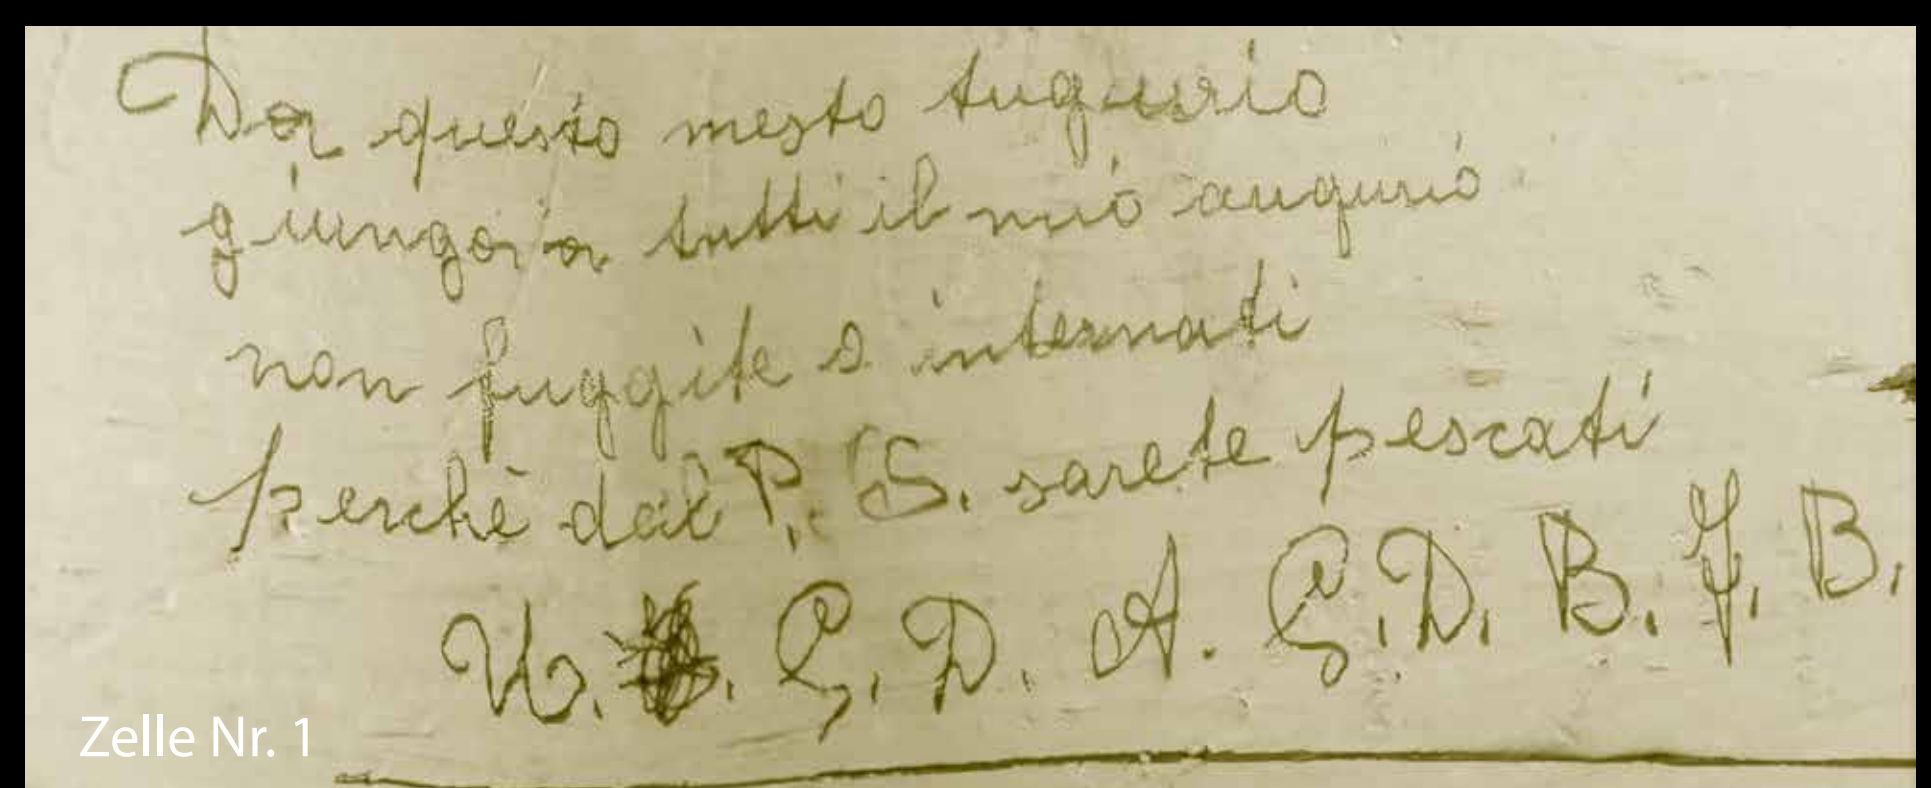 Da questo mesto tugurio
giunga a tutti il mio augurio
non fuggite o internati
perchè dal P. S. sarete pescati
G. D. A. G. D. B. F. B.
Zelle Nr. 1